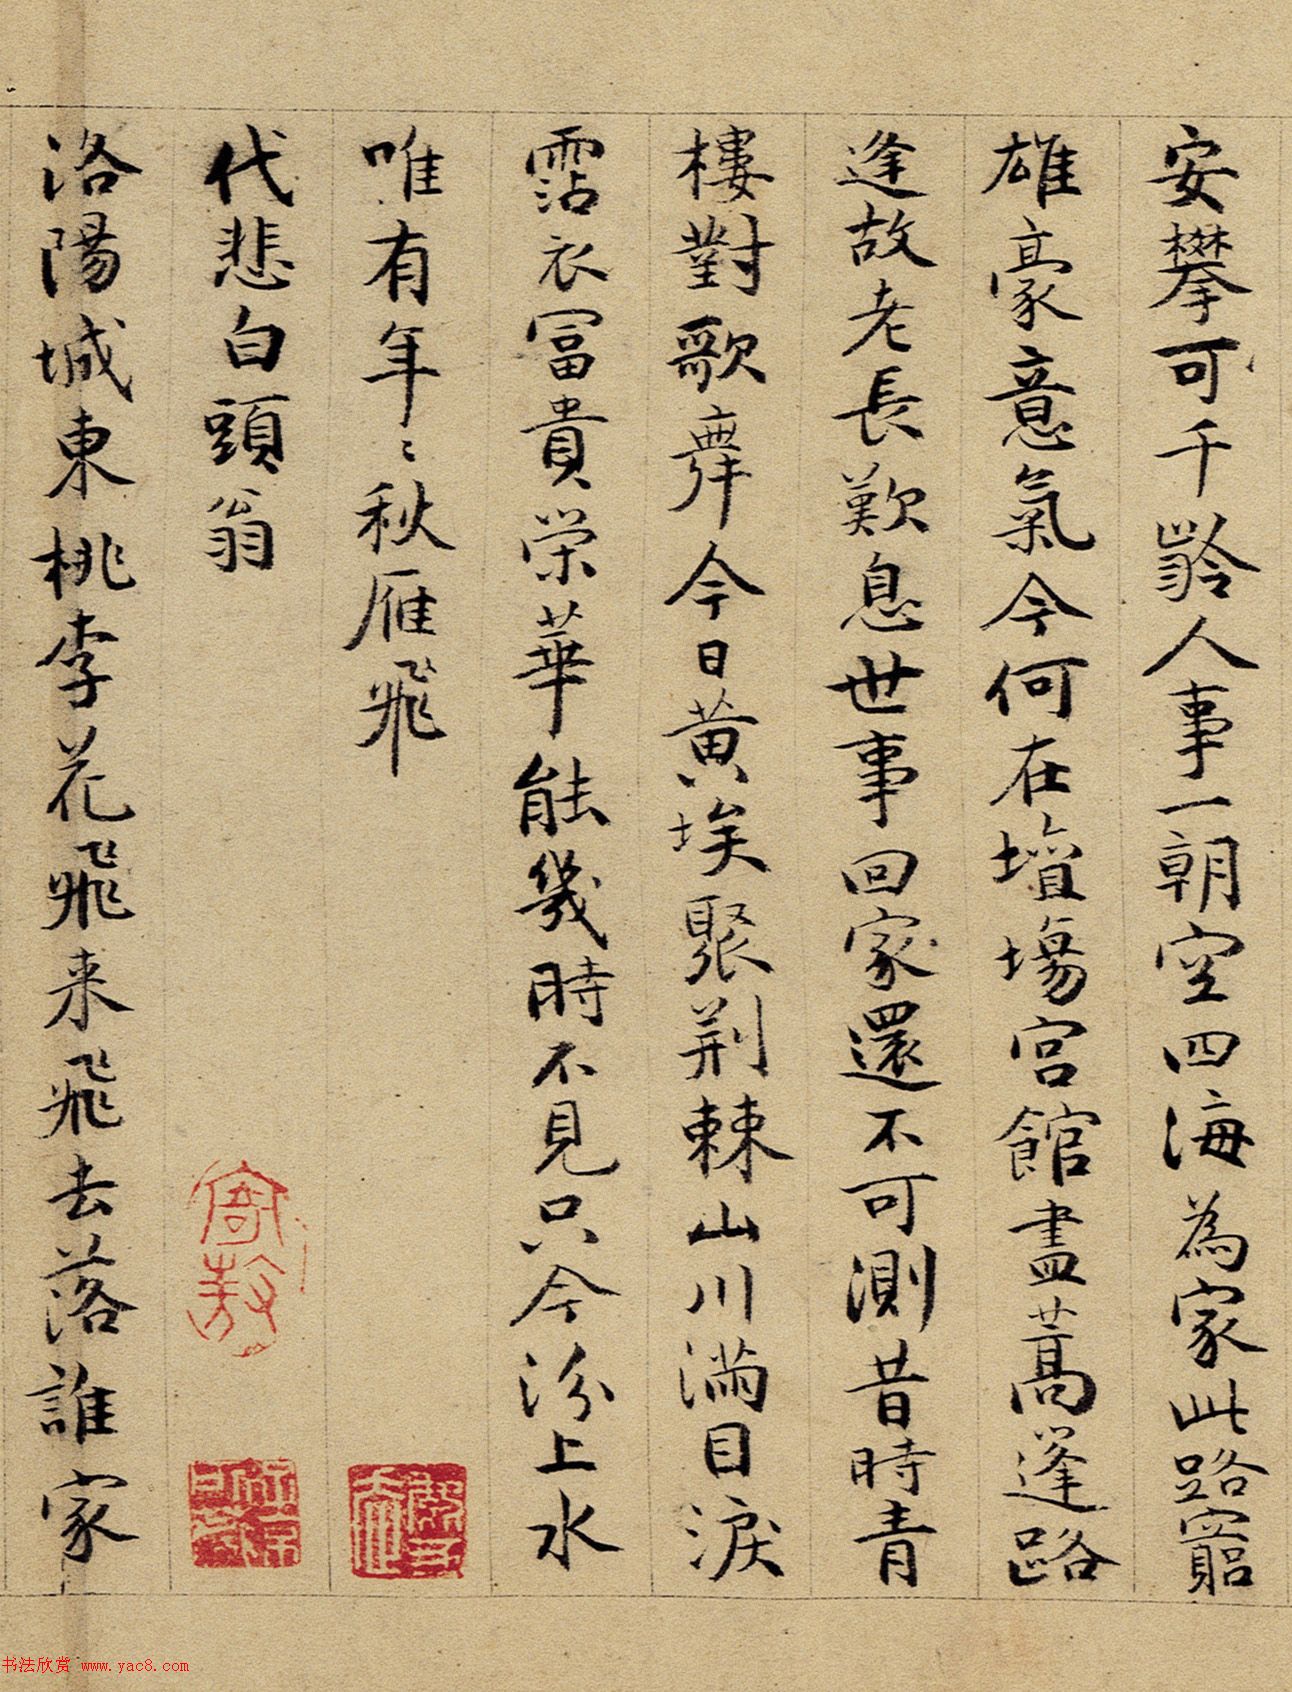 安攀可千齡人事一朝空四海為家此路窮
雄豪意氣今何在壇場宮館盡蒿蓬路
逢故老長歎息世事回家還不可測昔時青
樓對歌舞今日黃埃聚荆棘山川滿目淚
霑衣富貴榮華能幾時不見只今汾上水
唯有年〻秋雁飛
代悲白頭翁
洛陽城東桃李花飛来飛去落誰家
书法欣赏 www.yac8.com